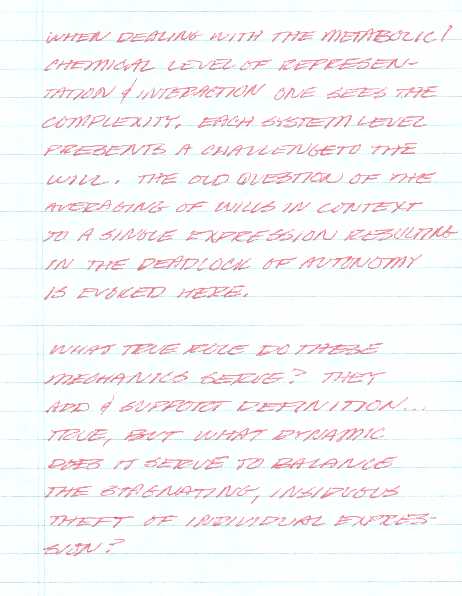 WHEN DEALING WITH THE METABOLIC/
CHEMICAL LEVEL OF REPRESEN-
TATION & INTERACTION ONE SEES THE
COMPLEXITY. EACH SYSTEM LEVEL
PRESENTS A CHALLENGE TO THE
WILL. THE OLD QUESTION OF THE
AVERAGING OF WILLS IN CONTEXT
TO A SINGLE EXPRESSION RESULTING
IN THE DEADLOCK OF AUTONOMY
IS EVOKED HERE.
WHAT TRUE ROLE DO THESE
MECHANICS SERVE? THEY
ADD & SUPPORT DEFINITION...
TRUE, BUT WHAT DYNAMIC
DOES IT SERVE TO BALANCE
THE STAGNATING, INSIDUOUS
THEFT OF INDIVIDUAL EXPRES-
SION?